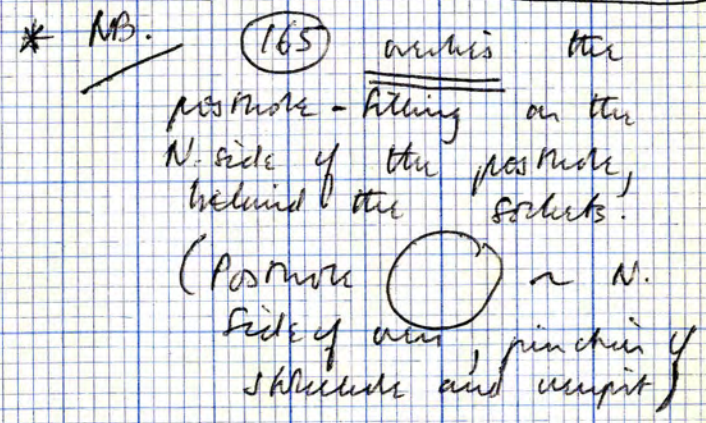 * NB. (165) overlies the
posthole-filling on the
N. side of the posthole,
behind the sockets.
(Posthole ◯ ~ N.
side of oven, junction of
and )